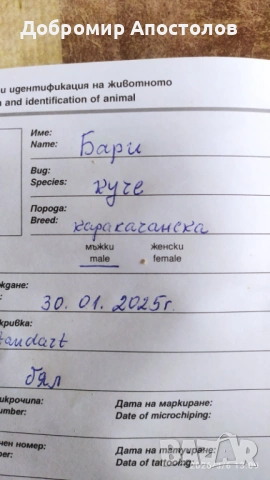 Добромир Апостолов
и идентификация на животното
and identification of animal
Име:
Name: Бари
Вид:
Species: куче
Порода:
Breed: каракачанска
мъжки женски
male female
ждане:
30. 01. 2025г.
кривка:
tandart
бял
икрочипа: Дата на маркиране:
umber: Date of microchiping:
чен номер: Дата на татуиране:
number: Data of tattooing:
BAZAR